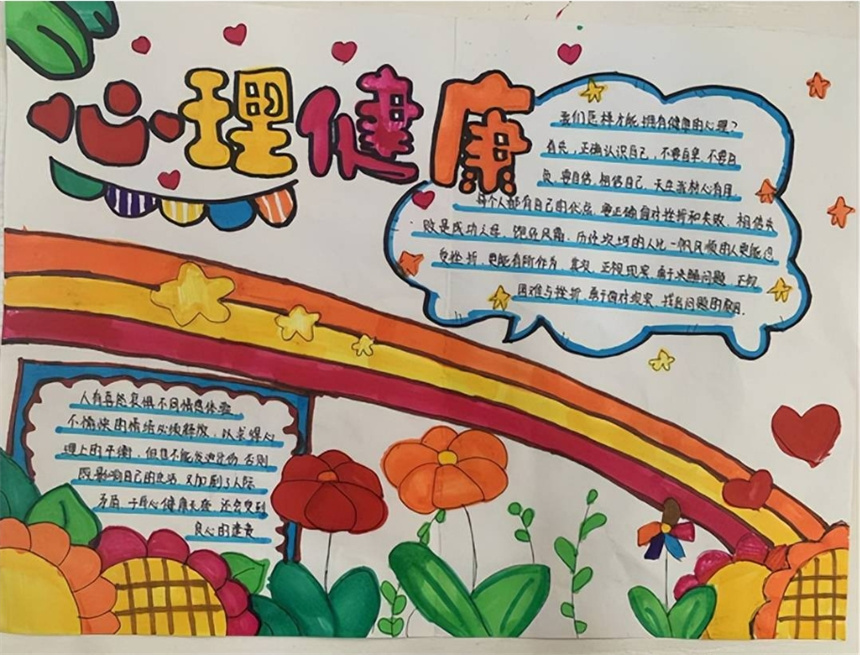 心理健康
我们怎样才能拥有健康的心理？
首先，正确认识自己，不要自卑，不要自
负，要自信，相信自己，天生我材必有用
每个人都有自己的优点，要正确面对挫折和失败，相信失
败是成功之母，饱经风霜，历经坎坷的人比一帆风顺的人更能忍
受挫折，更能有所作为，其次，正视现实，勇于决瞒问题，正视
困难与挫折，勇于面对现实，找出问题的原因.
人有喜怒哀惧不同情感体验
不愉快的情绪必须释放，以求得心
理上的平衡，但也不能发泄过份，否则
既影响自己的生活，又加剧了人际
矛盾，于身心健康无益，还会受到
良心的谴责